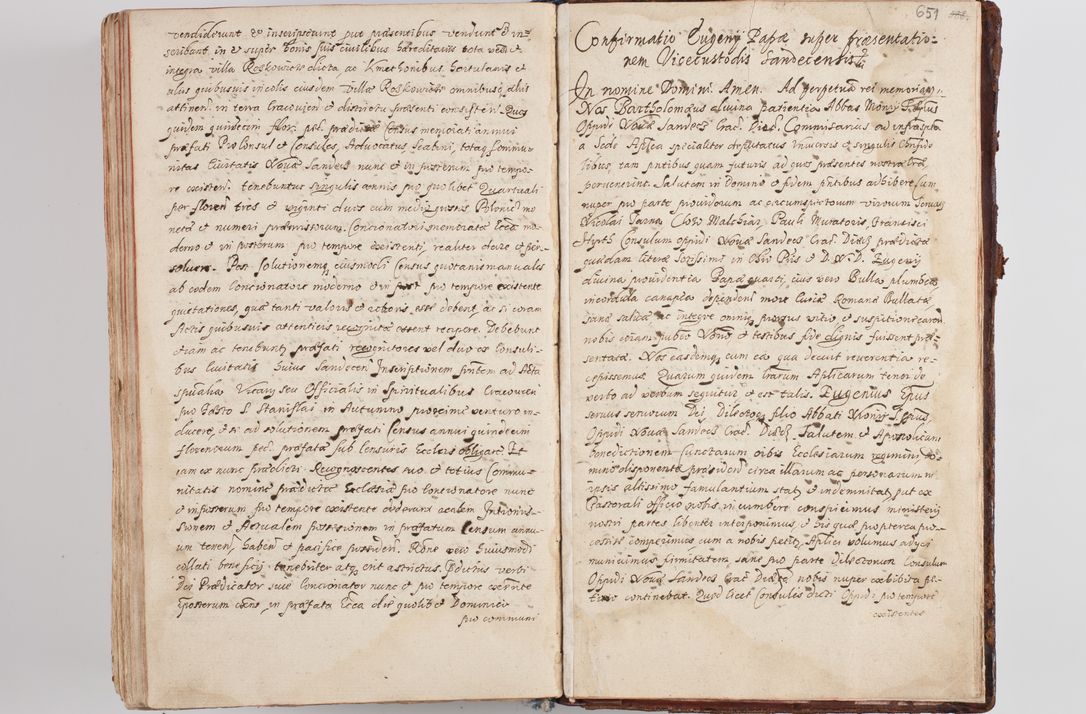 vendiderunt et inscripserunt prout præsentibus vendunt et in-
scribunt in et super bonis suis civilibus hæreditariis tota videlicet
integra villa Roskowice dicta ac Kmethonibus Hortulanis et
aliis quibusvis incolis eiusdem villæ Roskowice omnibusq aliis
attinen in terra Cracovien et districtu præsenti consisten. Quas
quidem quindecim flor: pec. prædictæ Census memorati annui
præfati Pro Consul et Consules Advocatus Scabini, totaq Commu-
nitas Civitatis Novæ Sandecz nunc et in posterum pro tempo-
re existen. tenebuntur singulis annis pro quolibet Quartuali
per floren tres et viginti duos cum medio grossos Polonic mo
netæ et numeri præmissorum. Concionatori memoratæ Eccæ mo-
derno et in posterum pro tempore existenti realiter dare et per-
solvere. Post solutionemq eiusmodi Census quotannis manuales
ab eodem Concionatore moderno et in post pro tempore existente
quietationes, quæ tanti valoris et roboris esse debent, ac si coram
Actis quibusvis attenticis recognitæ essent recipere. Debebunt
etiam ac tenebunt præfati recognitores vel duo ex Consuli-
bus Civitatis Huius Sandecen Inscriptionem præsentem ad Acta
spualia Vicarii seu Officialis in Spiritualibus Cracovien
pro Festo S. Stanislai in Autumno proxime venturo in-
ducere, et se ad solutionem præfati Census annui quindecim
florenorum pec. præfatæ sub Censuris Eccleis obligare Et
iam ex nunc prædicti Recognoscentes suo et totius Commu-
nitatis nomine prædictæ Ecclesiæ pro Concionatore nunc
et in posterum pro tempore existente
sionem et Actualem possessionem in præfatum Censum annu-
um tenen, Haben et pacifice possiden. Rone vero Huiusmodi
collati beneficii tenebitur atq erit astrictus. Edictus verbi
Dei Prædicator sive Concionator nunc et pro tempore existente
Eposterum exens in præfata Ecca die quolibet Dominico
pro communi
651
Confirmatio Eugeny Papæ super præsentatio-
nem Vicecustodis Sandecensis
In nomine Domini Amen. Ad perpetuã rei memoriam
Nos Bartholomæus divina patientia Abbas Monrii
Oppidi Novæ Sandecz Crac. Diec. Commisarius ad infrascripta
a Sede Aplica specialiter deputatus Universis et singulis Christifide
libus, tam pntibus quam futuris ad quos præsentes nostræ Lræ
pervenerint. Salutem in Domino et fidem pntibus adhibere cum
nuper pro parte providorum ac circumspectorum virorum
Nicolai Jarna, Cloro Malchiar, Pauli Muratoris, Francisci
Hyrth Consulum oppidi Novæ Sandecz Crac. Diec. prædictæ
quasdam literas Sctissimi in Chro Pris et D. N. D. Eugenii
divina providentia Papæ quarti, eius vero Bulla plumbea
in cordula canapea dependen more Curiæ Romanæ Bullatæ
sanas salicas ac integre omniq prorsus vitio et suspitione caren
nobis coram pubco Notrio et testibus fide dignis fuissent præ-
sentatæ. Nos easdemq cum ea qua decuit reverentia re-
cepissemus Quarum quidem Lrarum Aplicarum tenor de
verbo ad verbum sequitur et est talis. Eugenius Epus
servus servorum Dei Dilecto filio Abbati Monrii
Oppidi Novæ Sandecz Crac. Diec. Salutem et Apostolicam
benedictionem Cunctarum orbis Ecclesiarum regimini do-
mino disponente præsiden circa illarum ac personarum in
ipsis altissimo famulantium stat et indemnitat put ex
Pastorali Officio nobis in cumbere conspicimus ministerii
nostri partes libenter interponimus, et his quæ propterea pro-
cessisse comperimus cum a nobis petit, Aplici volumus adjici
muniminis firmitatem sane pro parte Dilectorum Consulum
Oppidi Novæ Sandecz Crac Diæcæ nobis nuper exhibita pe-
titio continebat. Quod licet Consules dicti Oppidi pro tempore
existentes